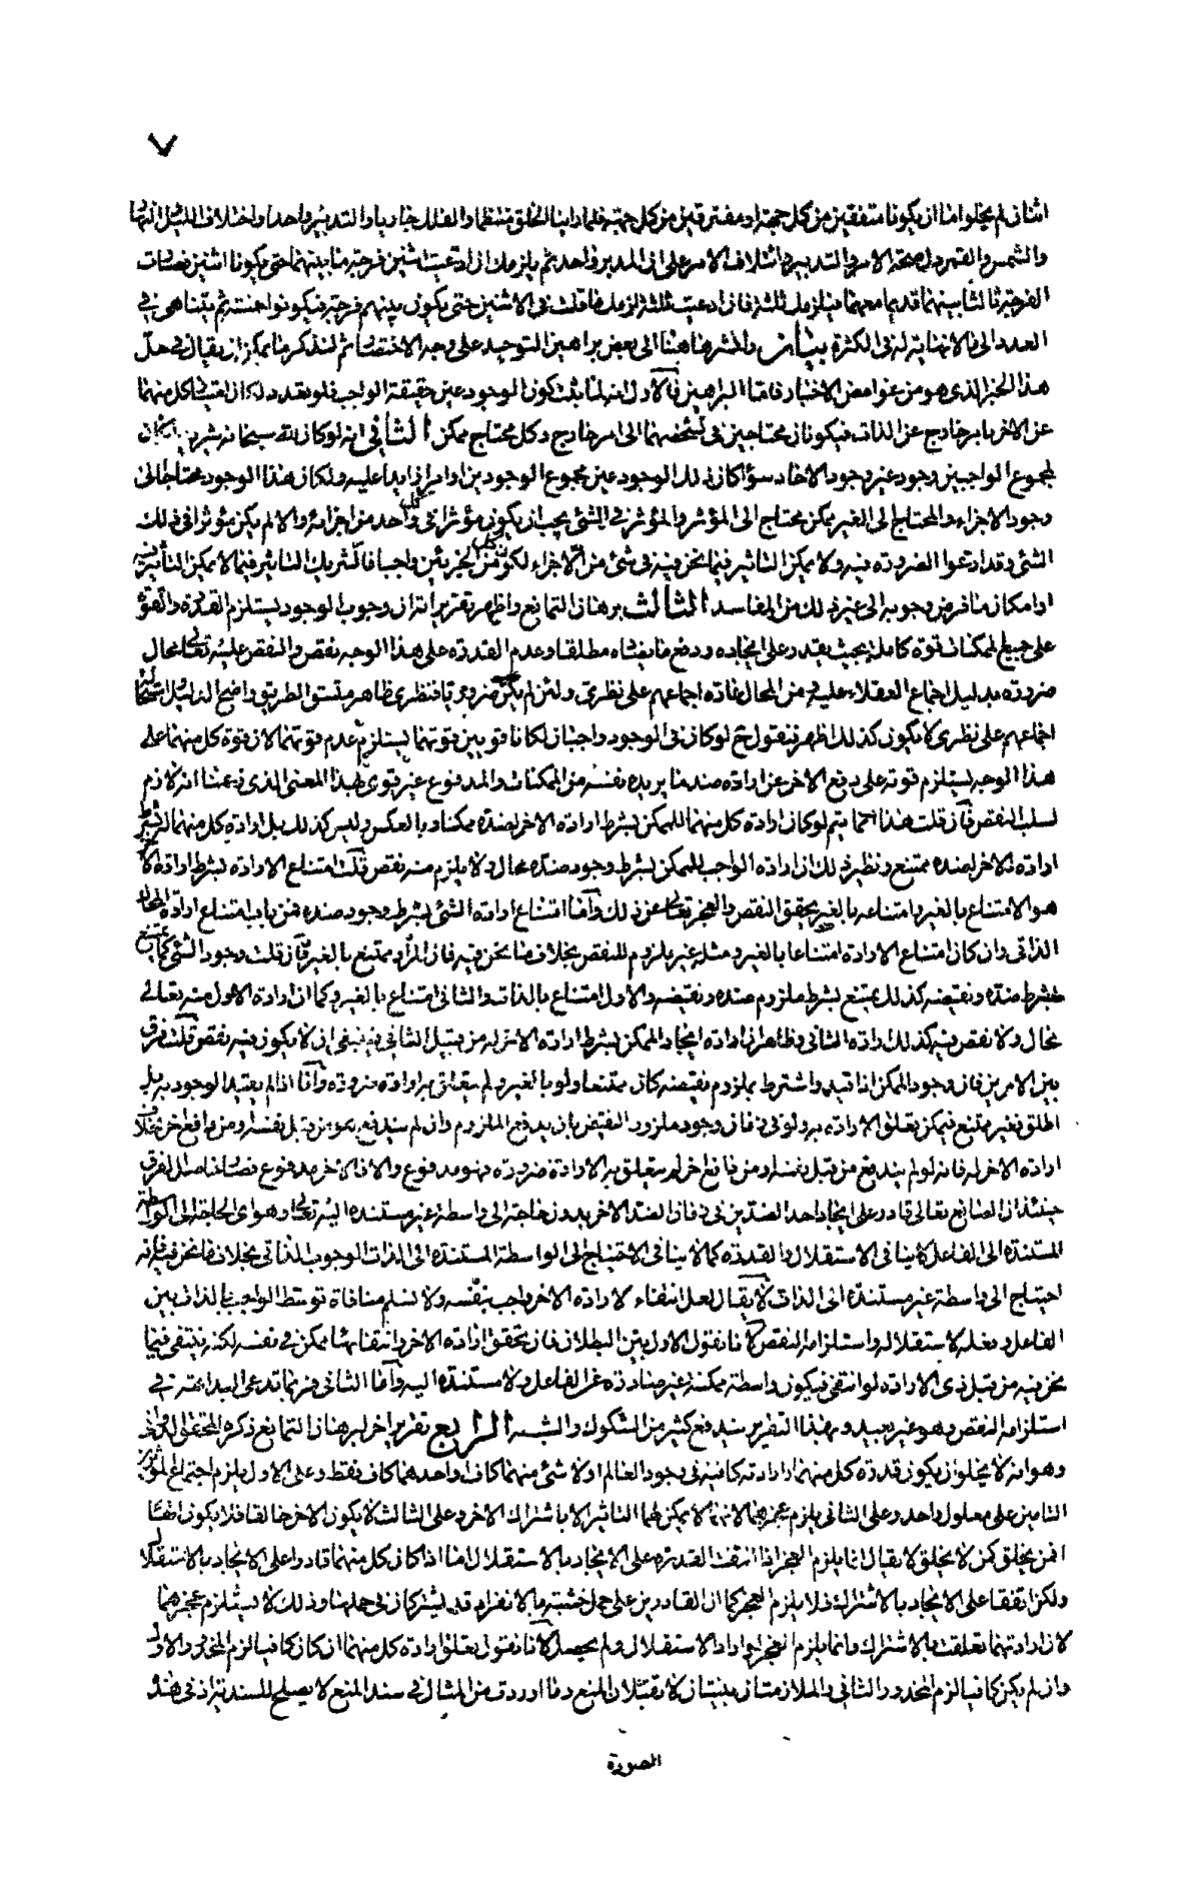 ٧
اثنان لم يخلو اما ان يكونا متفقين من كل جهة او مفترقين من كل جهة فلما راينا الخلق منتظما والفلك جاريا والتدبير واحدا واختلاف الليل والنهار
والشمس والقمر دل صحة الامر والتدبير وائتلاف الامر على ان المدبر واحد ثم يلزمك ان ادعيت اثنين فرجة ما بينهما حتى يكونا اثنين فصارت
الفرجة ثالثا بينهما قديما معهما فيلزمك ثلثة فان ادعيت ثلثة لزمك ما قلت في الاثنين حتى يكون بينهم فرجة فيكونوا خمسة ثم يتناهى في
العدد الى ما لا نهاية له في الكثرة بيان ولنشر هاهنا الى بعض براهين التوحيد على وجه الاختصار ثم لنذكر ما يمكن ان يقال في حل
هذا الخبر الذي هو من غوامض الاخبار فاما البراهين فالاول انه لما ثبت كون الوجود عين حقيقة الواجب فلو تعدد لكان امتياز كل منهما
عن الاخر بامر خارج عن الذات فيكونان محتاجين في تشخصهما الى امر خارج وكل محتاج ممكن الثاني انه لو كان لله سبحانه شريك لكان
لمجموع الواجبين وجود غير وجود الاحاد سواء كان ذلك الوجود عين مجموع الوجودين او امرا زايدا عليه ولكان هذا الوجود محتاجا الى
وجود الاجزاء والمحتاج الى الغير ممكن محتاج الى المؤثر والمؤثر في الشئ يجب ان يكون مؤثرا في كل واحد من اجزائه والا لم يكن مؤثرا في ذلك
الشئ وقد ادعوا الضرورة فيه ولا يمكن التاثير فيما نحن فيه في شئ من الاجزاء لكون كل من الجزئين واجبا فالشريك يستلزم التاثير فيما لا يمكن التاثير فيه
او امكان ما فرض وجوبه الى غير ذلك من المفاسد الثالث برهان التمانع واظهر تقريراته ان وجوب الوجود يستلزم القدرة والقوة
على جميع الممكنات قوة كاملة بحيث يقدر على ايجاده ودفع ما يضاده مطلقا وعدم القدرة على هذا الوجه نقص والنقص عليه تعالى محال
ضرورة بدليل اجماع العقلاء عليه ومن المحال عادة اجماعهم على نظري ولئن لم يكن ضروريا فنظري ظاهر متسق الطريق واضح الدليل واستحالة
اجماعهم على نظري لا يكون كذلك اظهر فنقول ح لو كان في الوجود واجبان لكانا قويين وقوتهما يستلزم عدم قوتهما لان قوة كل منهما على
هذا الوجه يستلزم قوته على دفع الاخر عن ارادة ضد ما يريده نفسه من الممكنات والمدفوع غير قوي بهذا المعنى الذي زعمنا انه لازم
لسلب النقص فان قلت هذا انما يتم لو كان ارادة كل منهما للممكن بشرط ارادة الاخر لضده ممكنا وبالعكس وليس كذلك بل ارادة كل منهما له بشرط
ارادة الاخر لضده ممتنع ونظير ذلك ان ارادة الواجب للممكن بشرط وجود ضده محال ولا يلزم منه نقص قلت امتناع الارادة بشرط ارادة الاخر
هو الامتناع بالغير وامتناعه بالغير يحقق النقص والعجز تعالى عن ذلك واما امتناع ارادة الشئ بشرط وجود ضده فمن باب امتناع ارادة المحال
الذاتي وان كان امتناع الارادة امتناعا بالغير ومثله غير ملزوم للنقص بخلاف ما نحن فيه فان المراد ممتنع بالغير فان قلت وجود الشئ كما يمتنع
بشرط ضده ونقيضه كذلك يمتنع بشرط ملزوم ضده ونقيضه والاول امتناع بالذات والثاني امتناع بالغير وكما ان ارادة الاول منه تعالى
محال ولا نقص فيه كذلك ارادة الثاني وظاهر ان ارادة ايجاد الممكن بشرط ارادة الاخر له من قبيل الثاني فينبغي ان لا يكون فيه نقص قلت فرق
بين الامرين فان وجود الممكن اذا قيد واشترط بملزوم نقيضه كان ممتنعا ولو بالغير ولم يتعلق به ارادة ضرورة واما اذا لم يقيد الوجود به بل
اطلق فغير ممتنع فيمكن تعلق الارادة به ولو في زمان وجود ملزوم النقيض بان يدفع الملزوم وان لم يندفع هو من قبل نفسه او من دافع اخر بخلاف
ارادة الاخر له فانه لو لم يندفع من قبل نفسه او من دافع اخر لم يتعلق به الارادة ضرورة فهو مدفوع والا فالاخر مدفوع فصار حاصل الفرق
حينئذ ان الصانع تعالى قادر على ايجاد احد الضدين في زمان الضد الاخر بدون حاجة الى واسطة غير مستندة اليه تعالى وهو اي الحاجة الى الواسطة
المستندة الى الفاعل لا ينافي الاستقلال والقدرة كما لا ينافي الاحتياج الى الواسطة المستندة الى الذات الوجوب الذاتي بخلاف ما نحن فيه فانه
احتياج الى واسطة غير مستندة الى الذات لا يقال لعل انتفاء ارادة الاخر واجب بنفسه ولا نسلم منافاة توسط الواجب بالذات بين
الفاعل وفعله لاستقلاله واستلزامه النقص لانا نقول الاول بين البطلان فان تحقق ارادة الاخر وانتفائها ممكن في نفسه لكنه ينتفي فيما
نحن فيه من قبل ذي الارادة لو انتفى فيكون واسطة ممكنة غير صادرة عن الفاعل ولا مستندة اليه واما الثاني فربما تدعى البداهة في
استلزامه النقص وهو غير بعيد وبهذا التقرير يندفع كثير من الشكوك والشبه الرابع تقرير اخر لبرهان التمانع ذكره المحقق الدواني
وهو انه لا يخلو ان يكون قدرة كل منهما وارادته كافية في وجود العالم او لا شئ منهما كاف او احدهما كاف فقط وعلى الاول يلزم اجتماع المؤثرين
التامين على معلول واحد وعلى الثاني يلزم عجزهما لانهما لا يمكن لهما التاثير الا باشتراك الاخر وعلى الثالث لا يكون الاخر خالقا فلا يكون الها
افمن يخلق كمن لا يخلق لا يقال انما يلزم العجز اذا انتفت القدرة على الايجاد بالاستقلال اما اذا كان كل منهما قادرا على الايجاد بالاستقلال
ولكن اتفقا على الايجاد بالاشتراك فلا يلزم العجز كما ان القادرين على حمل خشبة بالانفراد قد يشتركان في حملها وذلك لا يستلزم عجزهما
لان ارادتهما تعلقت بالاشتراك وانما يلزم العجز لو ارادا الاستقلال ولم يحصل لانا نقول تعلق ارادة كل منهما ان كان كافيا لزم المحذور الاول
وان لم يكن كافيا لزم المحذور الثاني والملازمتان بينتان لا تقبلان المنع وما اوردت من المثال في سند المنع لا يصلح للسندية اذ في هذه
الصورة